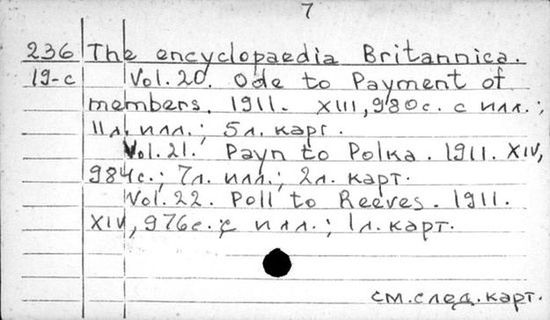 7
236 The encyclopaedia Britannica.
19-c Vol. 20. Ode to Payment of
members. 1911. XIII, 980с. с илл.;
11л. илл.; 5л. карт.
Vol. 21. Payn to Polka. 1911. XIV,
984с.; 7л. илл.; 2л. карт.
Vol. 22. Poll to Reeves. 1911.
XIV, 976с. с илл.; 1л. карт.
см. след. карт.